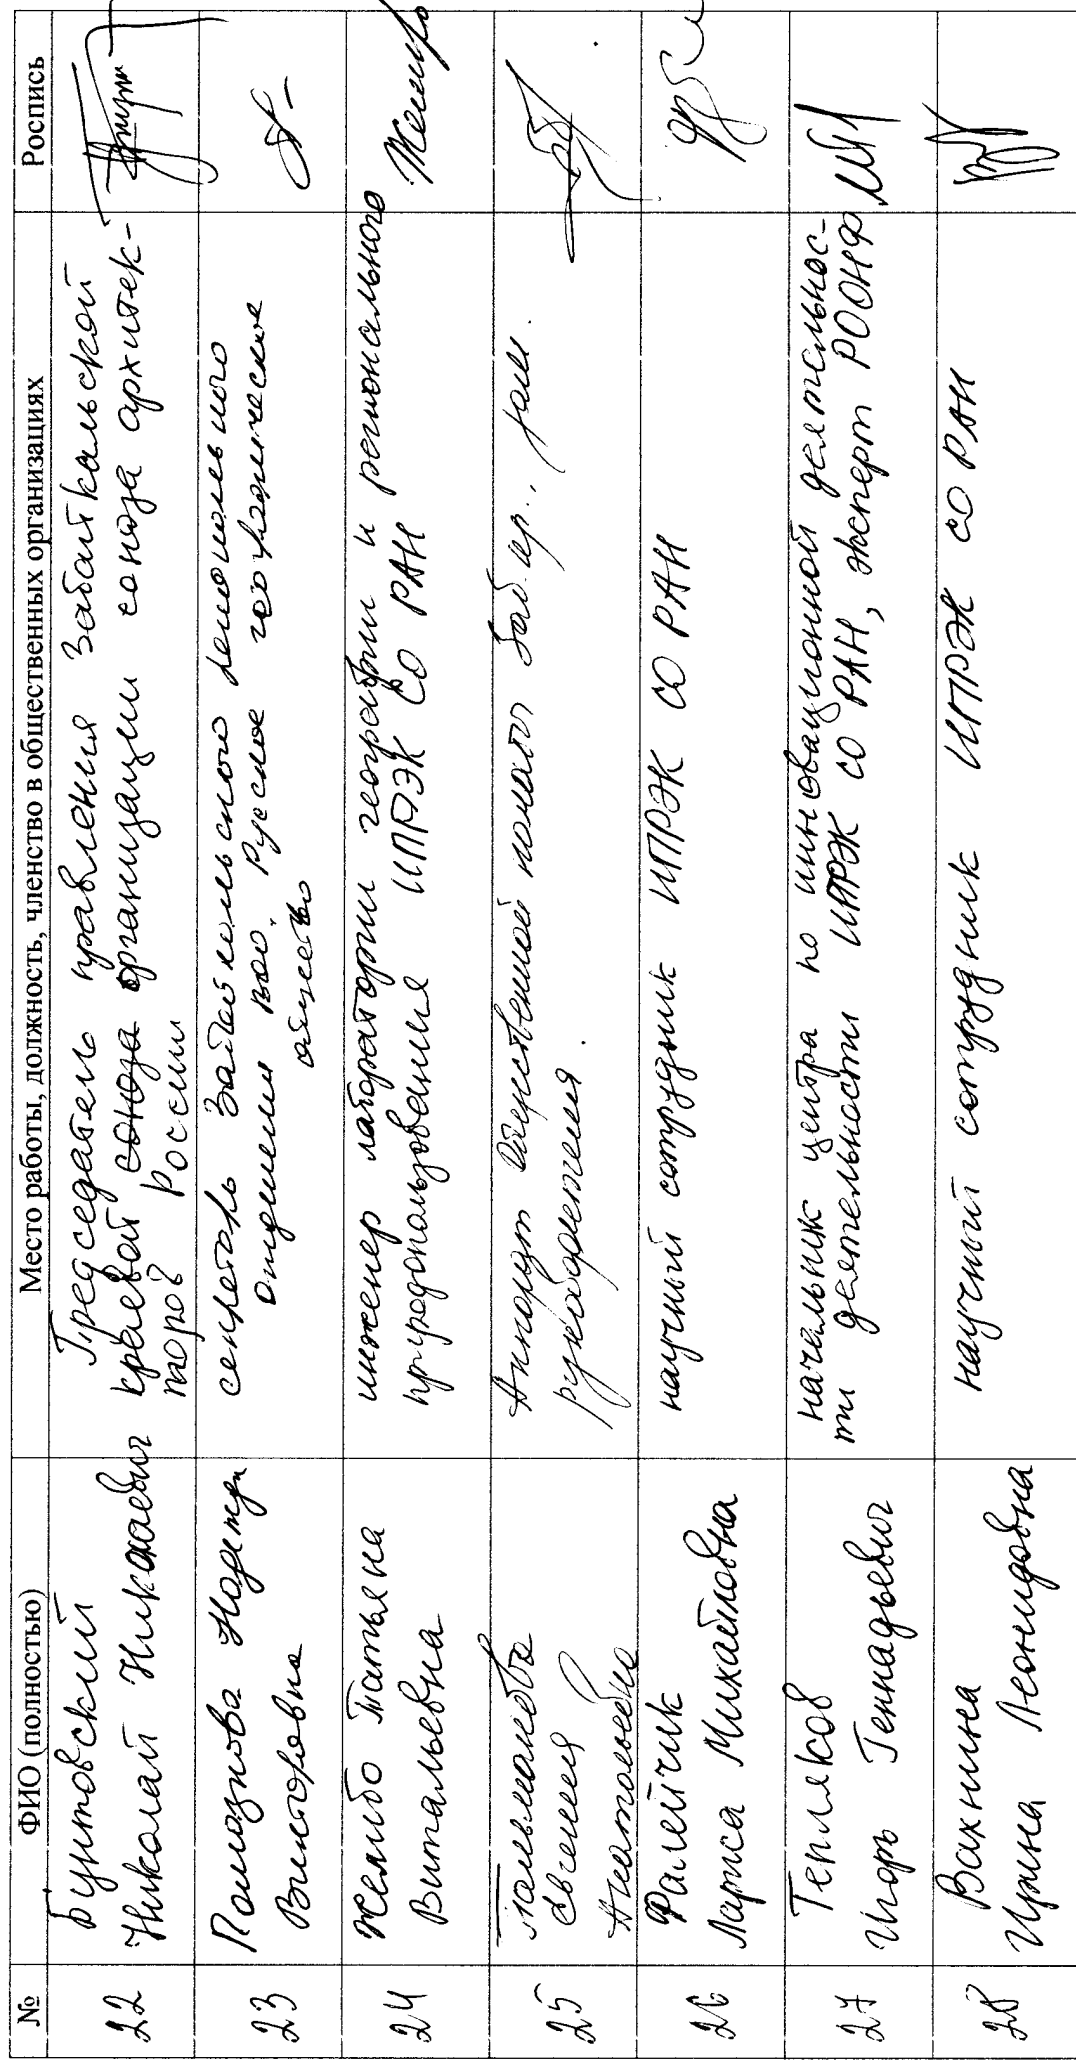 № ФИО (полностью) Место работы, должность, членство в общественных организациях Роспись
22
Бунтовский
Николай Николаевич
Председатель правления Забайкальской
краевой союза организации союза архитек-
торов России
23
Надежда
Викторовна
секретарь Забайкальского регионального
отделения ВОО Русское географическое
общество
24
Желибо Татьяна
Витальевна
инженер лаборатории географии и регионального
природопользования ИПРЭК СО РАН
25
Евгения
Анатольевна
Аппарат Общественной палаты Заб. кр., зам.
руководителя.
26
Фалейчик
Лариса Михайловна
научный сотрудник ИПРЭК СО РАН
27
Тепляков
Игорь Геннадьевич
начальник центра по инновационной деятельнос-
ти деятельности ИПРЭК СО РАН, эксперт РООНФ
28
Вахнина
Ирина Леонидовна
научный сотрудник ИПРЭК СО РАН